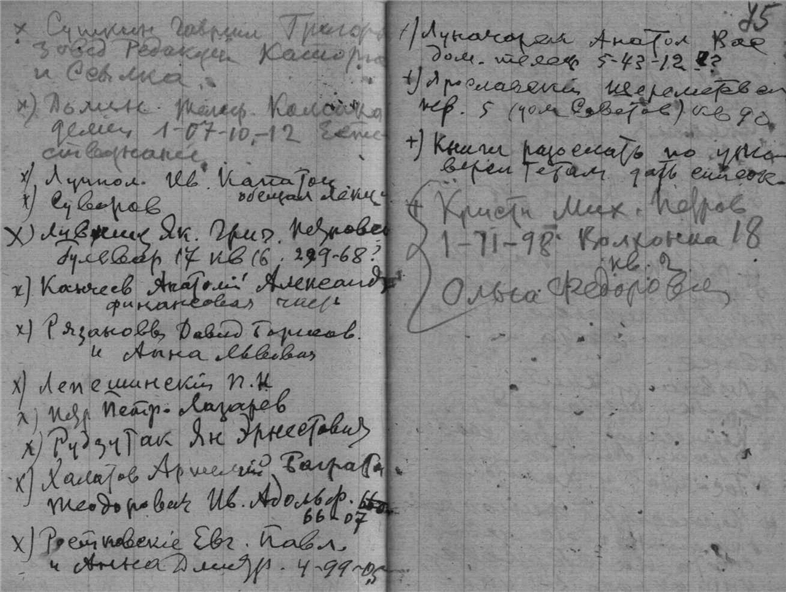 x Сушкин Гаврил Григор
Завед Редакции Каторга
и Ссылка
x) Ильин. телеф.
1-07-10,-12
x) Луппол. Ив. Капитон
обещал лекц
x) Суворов
x) Як. Григ. Петровск
бульвар 17 кв 16. 299-68?
x) Анатолий Александ
финансовая часть
x) Рязановъ Давид Борисов.
и Анна Львовна
x) Лепешинский П.Н
x) Петр Лазарев
x) Рудзутак Ян Эрнестович
x) Халатов Багратов
Теодорович Ив. Адольф.
66-07
x) Ростковские Евг. Павл.
и Анна Дмитр. 4-99-
75
+) Луначарск Анатол Вас
дом. телеф 5-43-12 ?
+) Ярославский Шереметьев
пр. 5 (дом Советов) кв 90
+) Книги разослать по
дать список
+ Кристи Мих. Петров
1-71-98 Волхонка 18
кв. 2
Ольга Федоровна